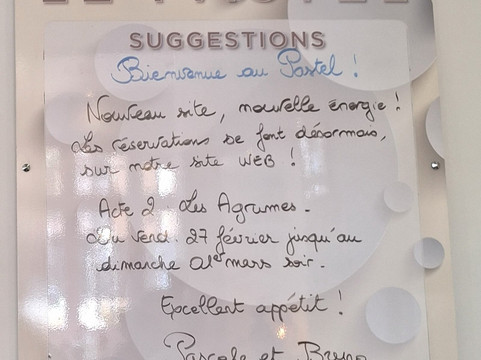 LE PASTEL
SUGGESTIONS
Bienvenue au Pastel !
Nouveau site, nouvelle énergie !
Les réservations se font désormais,
sur notre site WEB !
Acte 2 Les Agrumes.
Du vend. 27 février jusqu'au
dimanche 01er mars soir.
Excellent appétit !
Pascale et Bruno